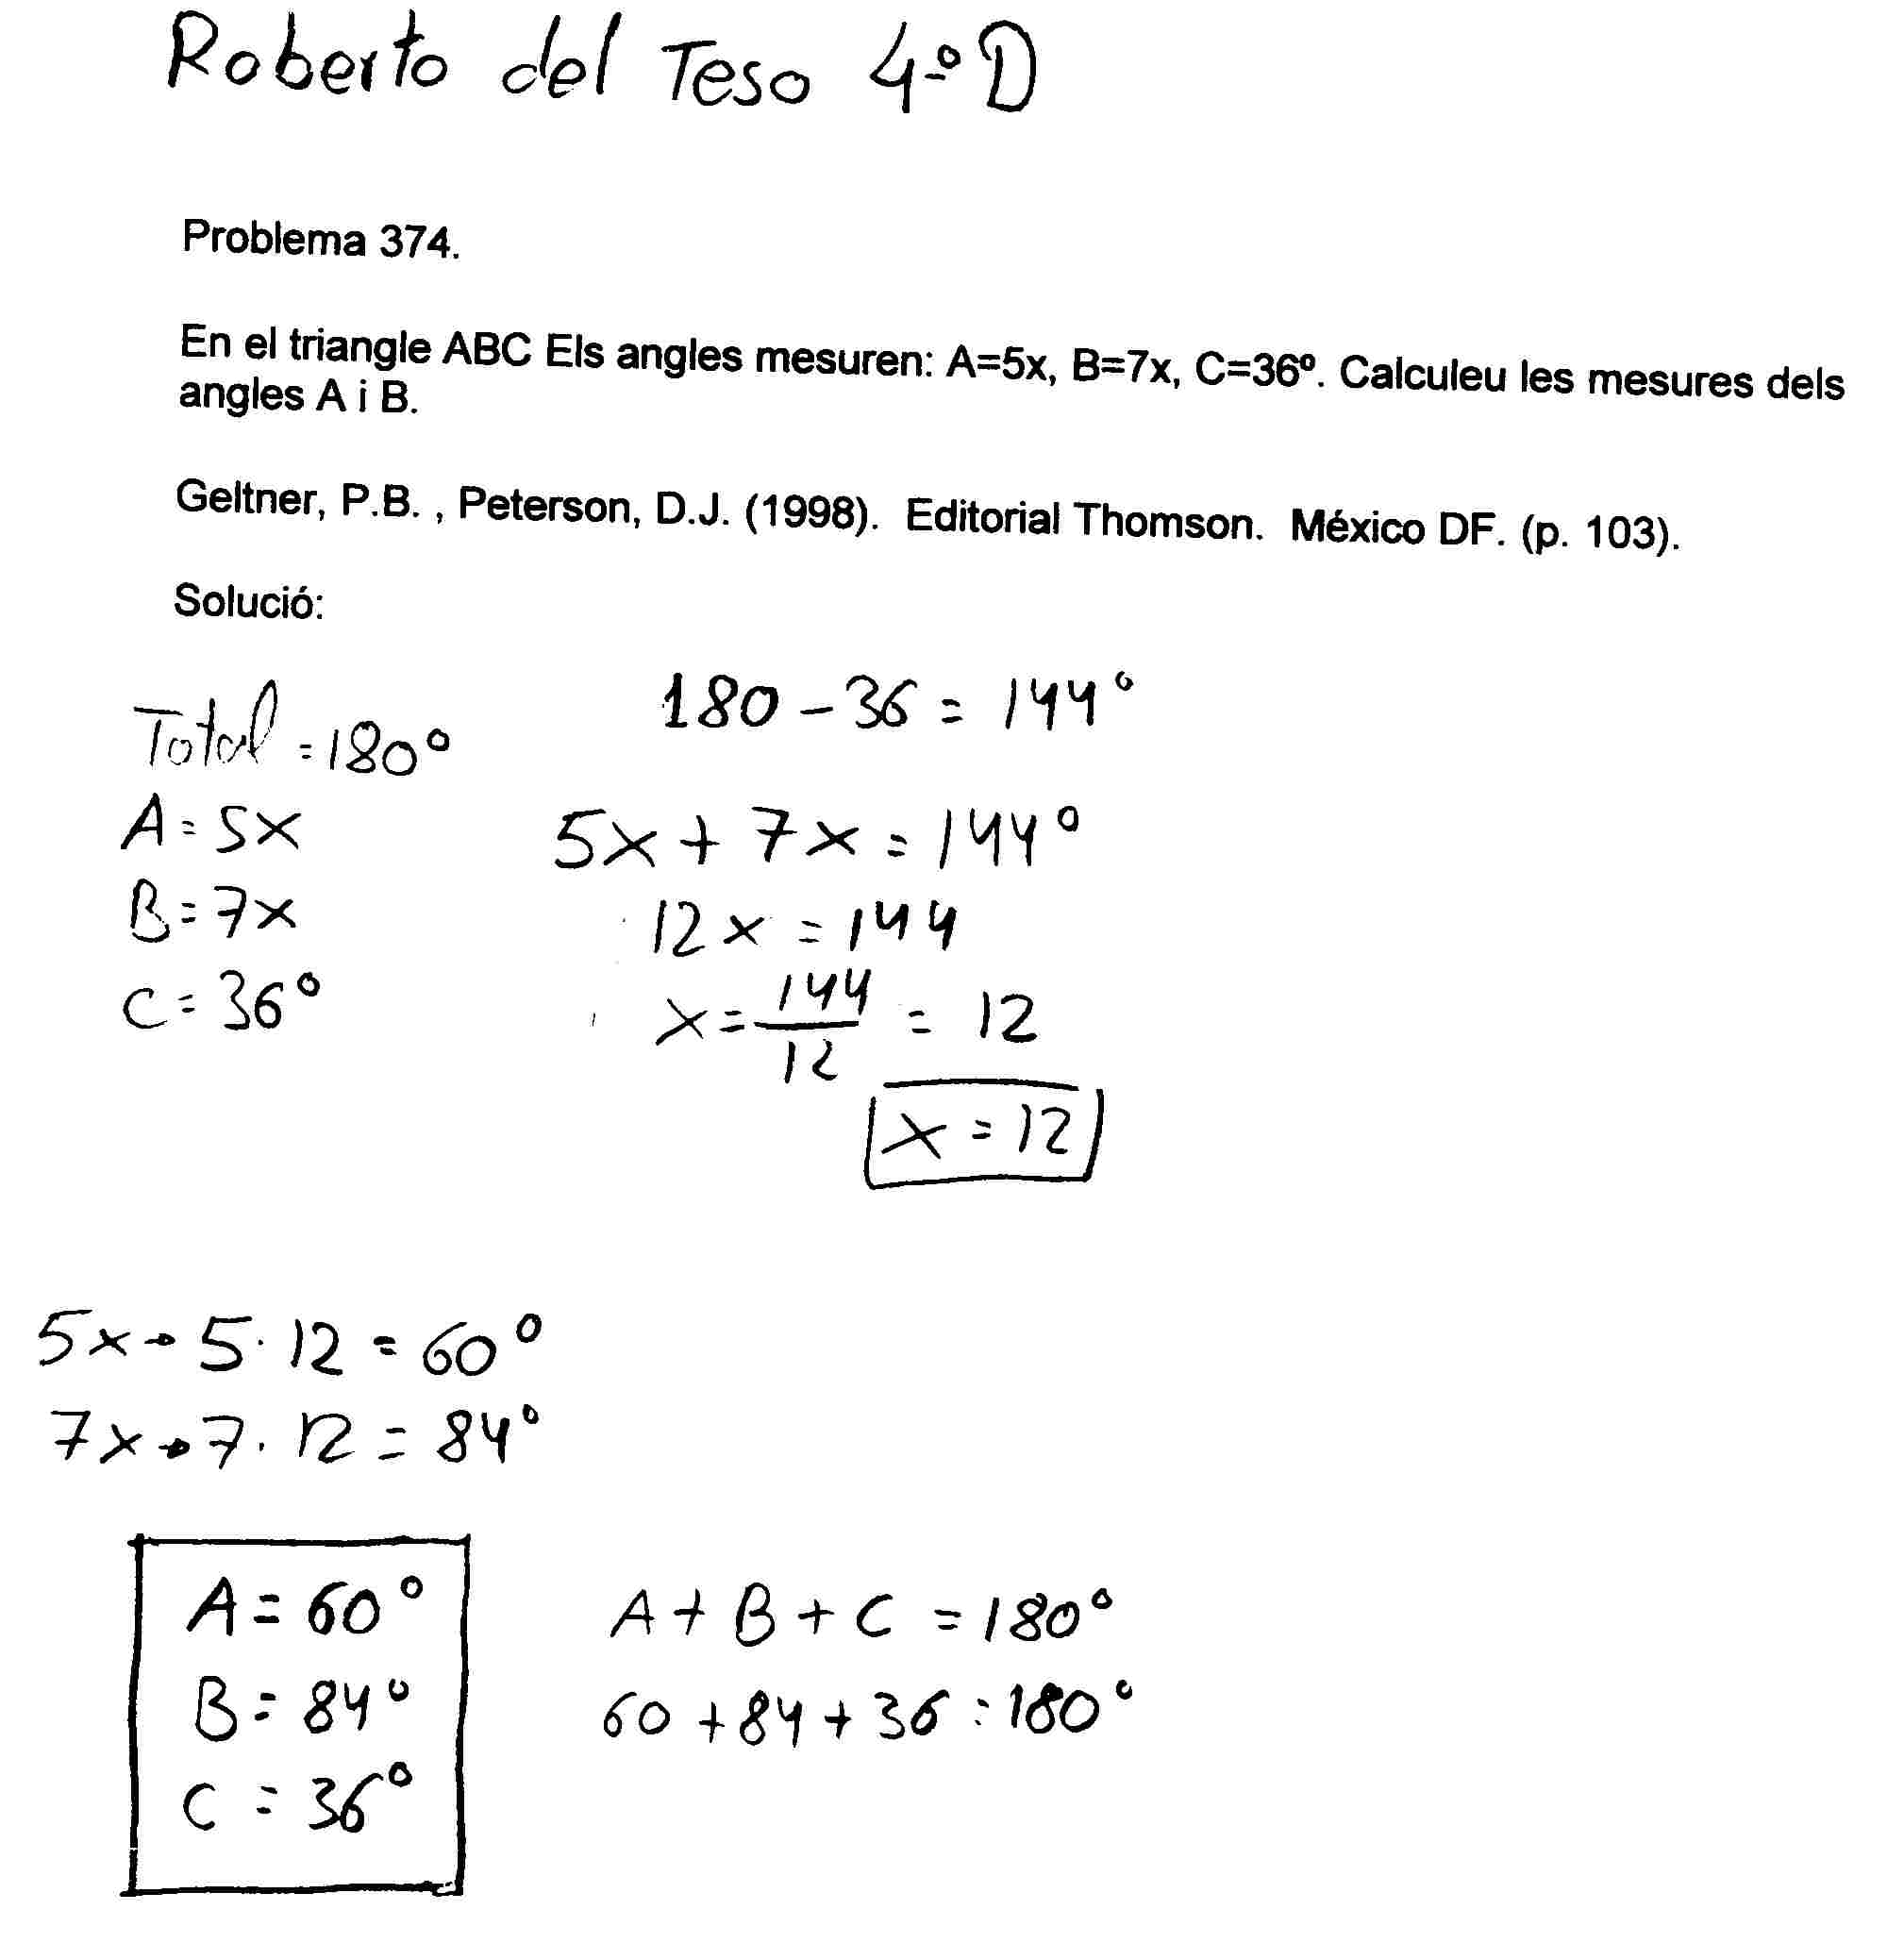 Roberto del Teso 4.º D
Problema 374.
En el triangle ABC Els angles mesuren: A=5x, B=7x, C=36º. Calculeu les mesures dels
angles A i B.
Geltner, P.B. , Peterson, D.J. (1998). Editorial Thomson. México DF. (p. 103).
Solució:
Total = 180º
A = 5x
B = 7x
C = 36º
180 - 36 = 144º
5x + 7x = 144º
12x = 144
x = 144/12 = 12
x = 12
5x → 5 · 12 = 60º
7x → 7 · 12 = 84º
A = 60º
B = 84º
C = 36º
A + B + C = 180º
60 + 84 + 36 = 180º